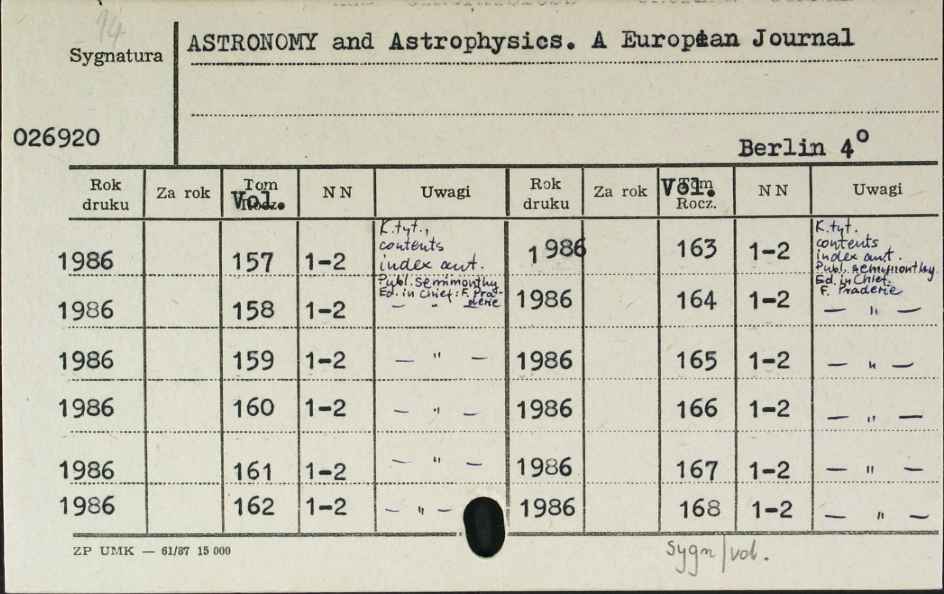 14
Sygnatura
ASTRONOMY and Astrophysics. A European Journal
026920
Berlin 4°
Rok druku Za rok Tom Rocz. Vol. N N Uwagi Rok druku Za rok Tom Rocz. Vol. N N Uwagi
1986 157 1-2 K.tyt., contents index aut. Publ. semimonthly Ed. in Chief: F. Praderie 1986 163 1-2 K.tyt. contents index aut. Publ. semimonthly Ed. in Chief. F. Praderie
1986 158 1-2 — " — 1986 164 1-2 — " —
1986 159 1-2 — " — 1986 165 1-2 — " —
1986 160 1-2 — " — 1986 166 1-2 — " —
1986 161 1-2 — " — 1986 167 1-2 — " —
1986 162 1-2 — " — 1986 168 1-2 — " —
ZP UMK — 61/87 15 000
sygn/vol.